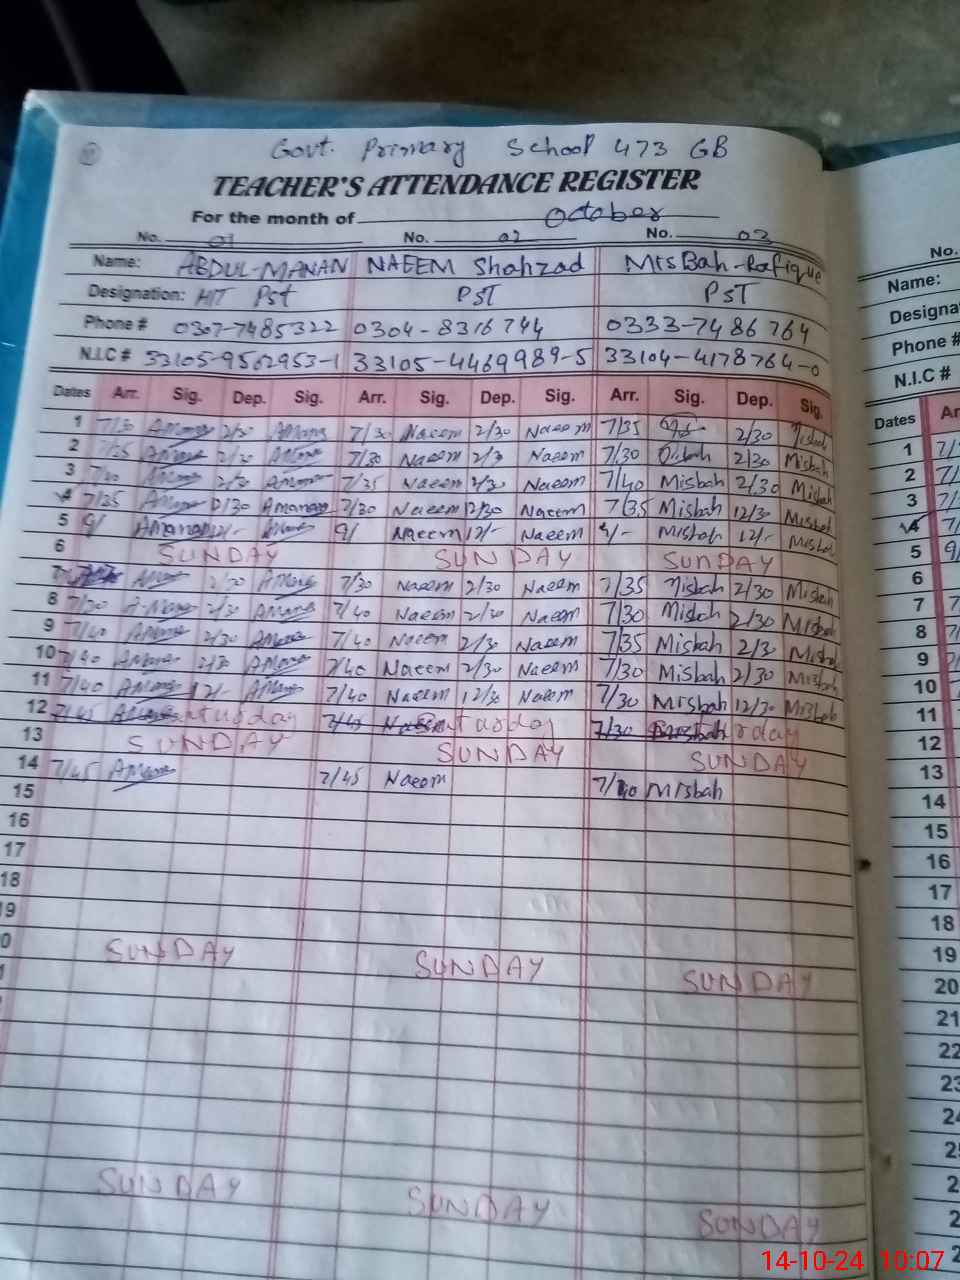 Govt. Primary School 473 GB
TEACHER'S ATTENDANCE REGISTER
For the month of October
No. 01 No. 02 No. 03
Name: ABDUL-MANAN NAEEM Shahzad MisBah-Rafique
Designation: HIT Pst PST PST
Phone # 0307-7485322 0304-8316744 0333-7486764
N.I.C # 33105-9562953-1 33105-4469989-5 33104-4178764-0
Dates Arr. Sig. Dep. Sig. Arr. Sig. Dep. Sig. Arr. Sig. Dep. Sig.
1 7/30 2/30 7/30 Naeem 2/30 Naeem 7/35 2/30 Misbah
2 7/25 2/30 7/30 Naeem 2/3 Naeem 7/30 2/30 Misbah
3 2/30 7/35 Naeem 2/30 Naeem 7/40 Misbah 2/30 Misbah
4 7/35 7/30 Naeem 12/30 Naeem 7/35 Misbah 12/30 Misbah
5 9/ 12/- 9/ Naeem 12/- Naeem 9/- Misbah 12/- Misbah
6 SUNDAY SUNDAY SUNDAY
7 2/30 7/30 Naeem 2/30 Naeem 7/35 Misbah 2/30 Misbah
8 7/30 2/30 7/40 Naeem 2/30 Naeem 7/30 Misbah 2/30 Misbah
9 7/40 2/30 7/40 Naeem 2/30 Naeem 7/35 Misbah 2/30 Misbah
10 7/40 2/30 7/40 Naeem 2/30 Naeem 7/30 Misbah 2/30 Misbah
11 7/40 12/- 7/40 Naeem 12/30 Naeem 7/30 Misbah 12/30 Misbah
12 7/45 turday 7/45 turday 7/30 rday
13 SUNDAY SUNDAY SUNDAY
14 7/45 7/45 Naeem 7/40 Misbah
15
16
17
18
19
SUNDAY SUNDAY SUNDAY
SUNDAY SUNDAY SUNDAY
No.
Name:
Phone #
N.I.C #
Dates
1
2
3
4
5
6
7
8
9
10
11
12
13
14
15
16
17
18
19
20
21
22
23
24
14-10-24 10:07